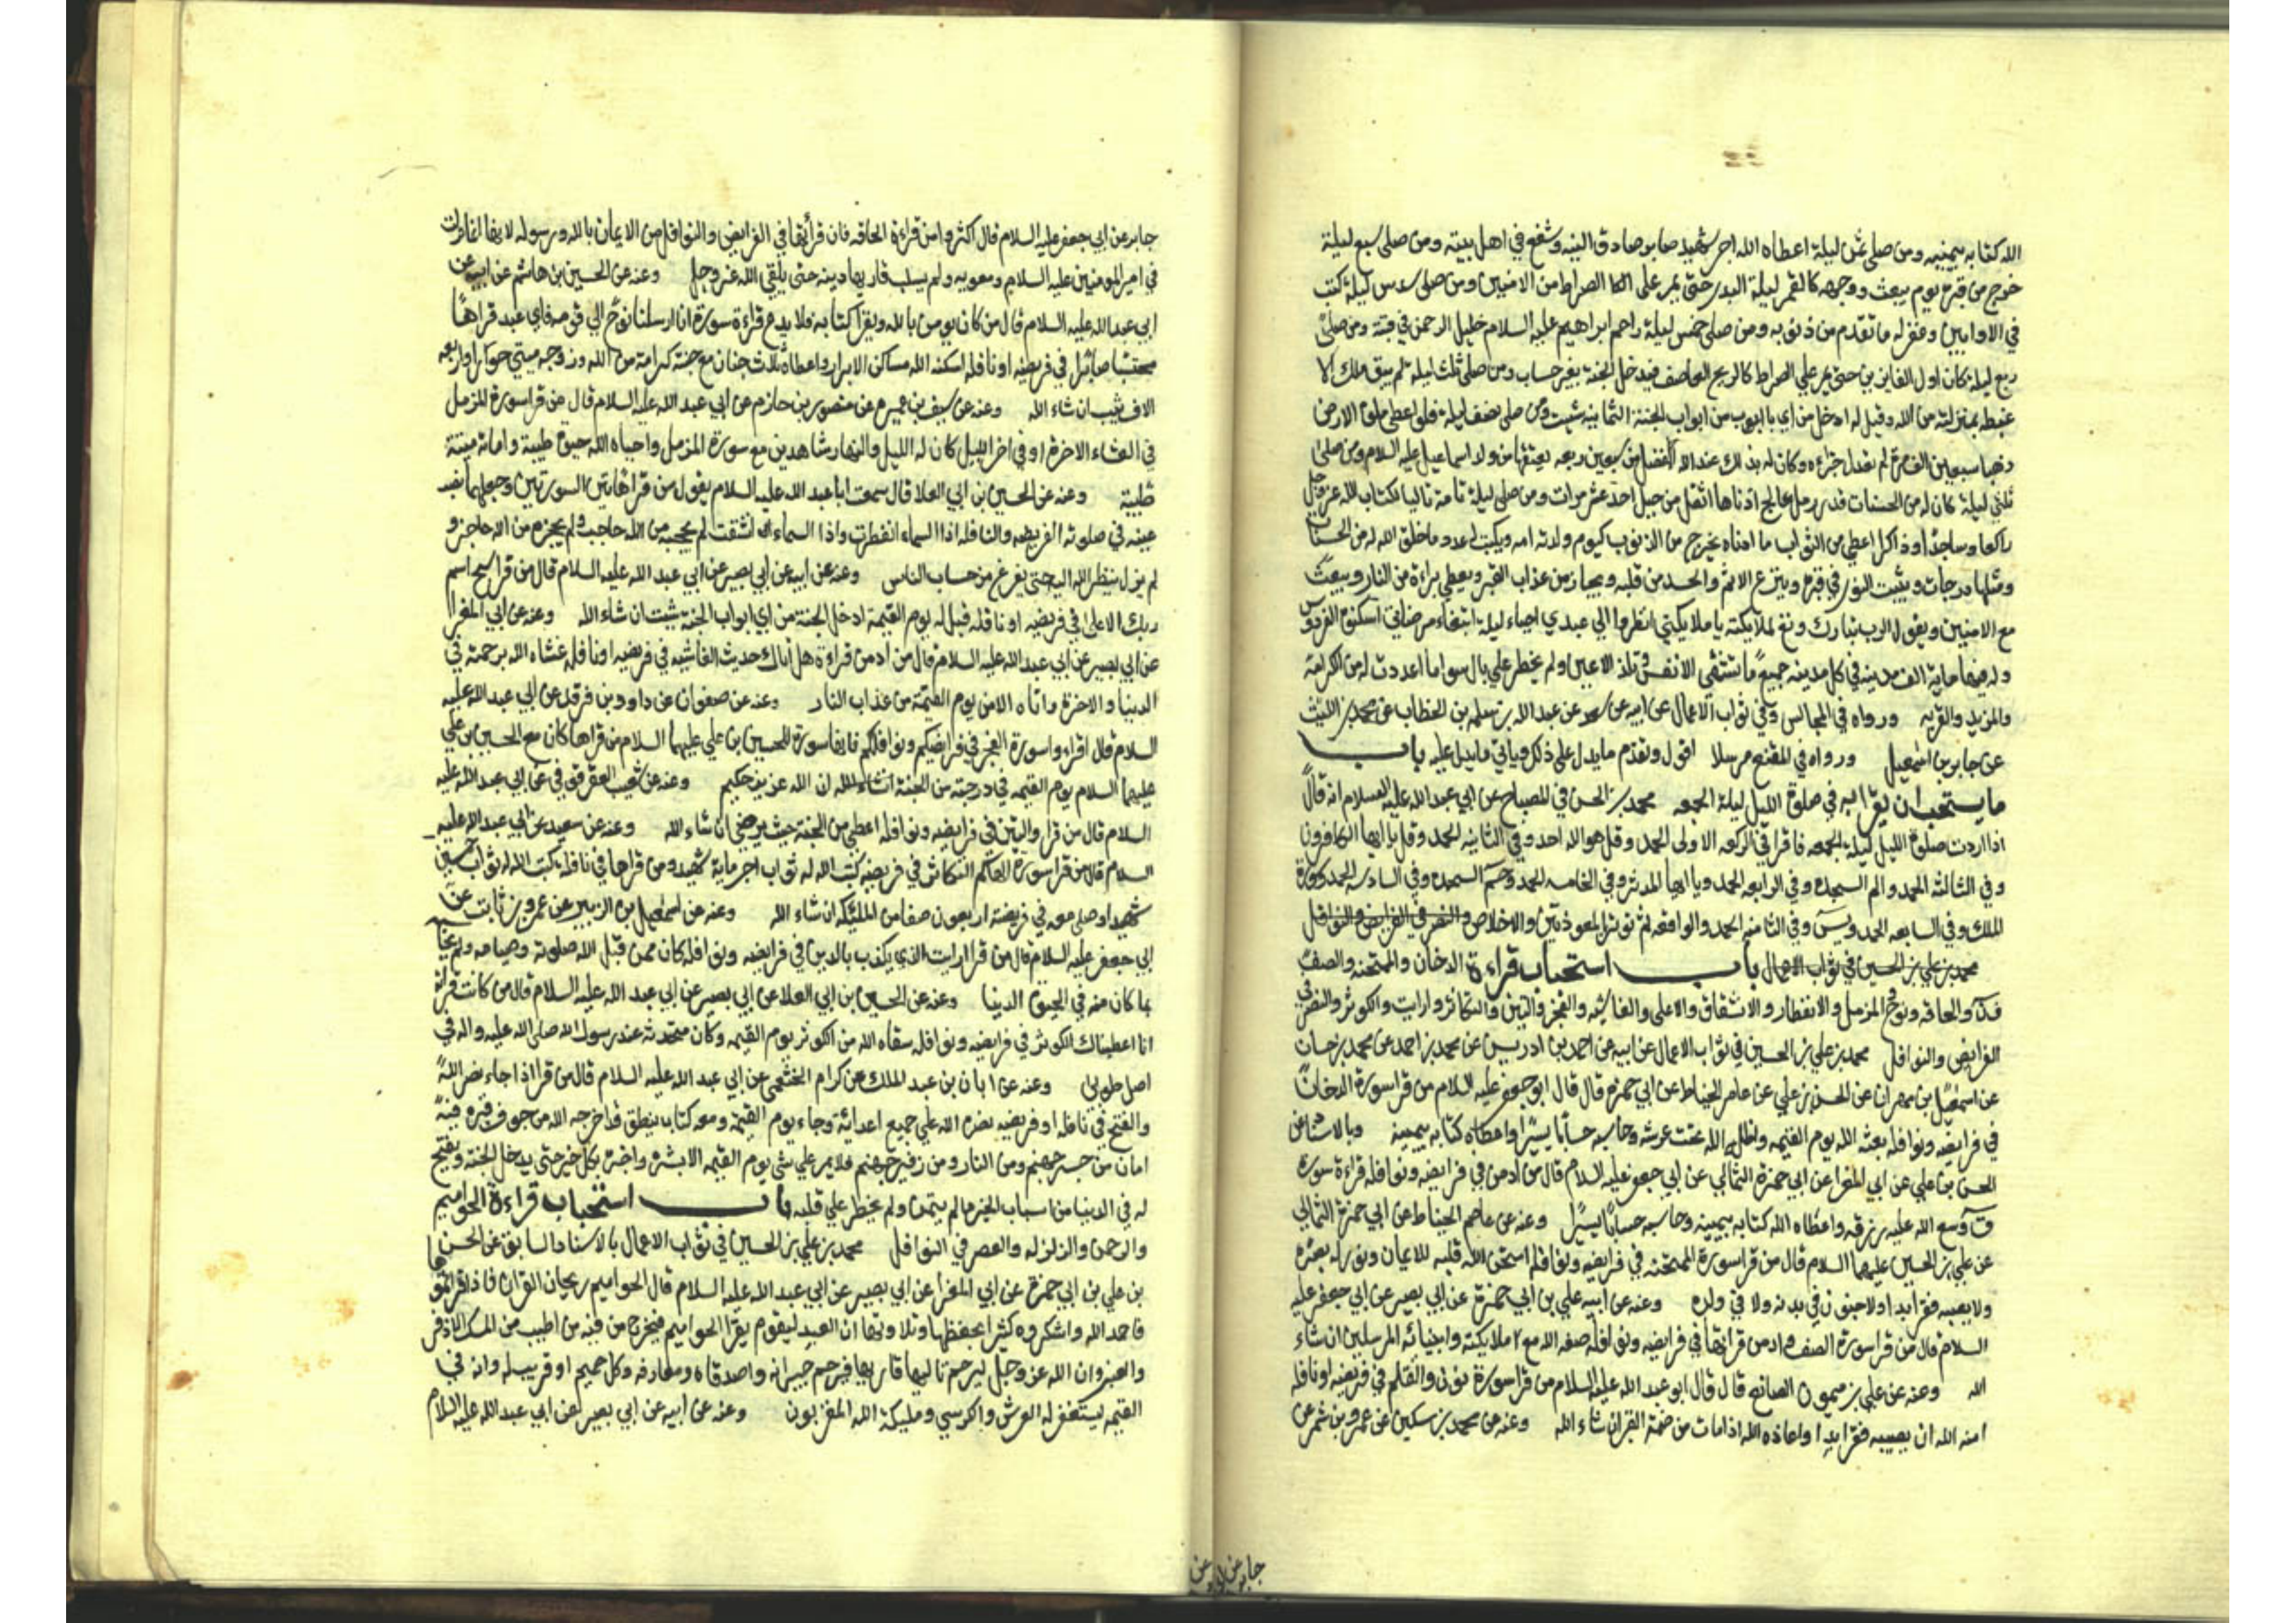 الله كتابه بيمينه ومن صلى ثمن ليلة اعطاه الله اجر شهيد صابر صادق النية وشفع في اهل بيته ومن صلى سبع ليلة
خرج من قبره يوم يبعث ووجهه كالقمر ليلة البدر حتى يمر على الصراط مع الامنين ومن صلى سدس ليلة كتب
في الاوابين وغفر له ما تقدم من ذنوبه ومن صلى خمس ليلة زاحم ابراهيم عليه السلام خليل الرحمن في قبته ومن صلى
ربع ليلة كان اول الفايزين حتى يمر على الصراط كالريح العاصف فيدخل الجنة بغير حساب ومن صلى ثلث ليلة لم يبق ملك الا
غبطه بمنزلته من الله وقيل له ادخل من اي باب ابواب الجنة الثمانيه شئت ومن صلى نصف ليلة فلو اعطي ملؤ الارض
ذهبا سبعين الف مرة لم يعدل جزاءه وكان له بذلك عند الله افضل من سبعين رقبه يعتقها من ولد اسماعيل عليه السلام ومن صلى
ثلثي ليلة كان له من الحسنات قدر رمل عالج ادناها اثقل من جبل احد عشر مرات ومن صلى ليلة تامة تاليا لكتاب الله عز وجل
راكعا وساجدا وذاكرا اعطي من الثواب ما ادناه يخرج من الذنوب كيوم ولدته امه ويكتب له عدد ما خلق الله من الحسنات
ومثلها درجات ويثبت النور في قبره وينزع الاثم والحسد من قلبه ويجار من عذاب القبر ويعطى براءة من النار ويبعث
مع الامنين ويقول الرب تبارك وتعالى لملايكته يا ملايكتي انظروا الي عبدي احياء ليلة ابتغاء مرضاتي اسكنوه الفردوس
وله فيها ماية الف مدينه في كل مدينه جميع ما تشتهي الانفس وتلذ الاعين ولم يخطر على بال سوا ما اعددت له من الكرامة
والمزيد والقربه ورواه في المجالس وفي ثواب الاعمال عن ابيه عن سعد عن عبد الله سلمه بن الخطاب عن محمد بن الليث
عن جابر بن اسمعيل ورواه في المقنع مرسلا اقول وتقدم ما يدل على ذلك وياتي ما يدل عليه باب
ما يستحب ان يقرا به في صلوة الليل ليلة الجمعه محمد بن الحسن في المصباح عن ابي عبد الله عليه السلام انه قال
اذا اردت صلوة الليل ليلة الجمعه فاقرا في الركعه الاولى الحمد وقل هو الله احد وفي الثانيه الحمد وقل يا ايها الكافرون
وفي الثالثه الحمد والم السجده وفي الرابعه الحمد ويا ايها المدثر وفي الخامسه الحمد وحم السجده وفي السادسه الحمد وسورة
الملك وفي السابعه الحمد ويس وفي الثامنه الحمد والواقعه ثم توتر بالمعوذتين والاخلاص والنصر في الفرايض والنوافل
محمد بن علي بن الحسين في ثواب الاعمال باب استحباب قراءة الدخان والممتحنه والصف
ون والحاقه ونوح والمزمل والانفطار والانشقاق والاعلى والغاشيه والفجر والتين والتكاثر وارايت والكوثر والنصر في
الفرايض والنوافل محمد بن علي بن الحسين في ثواب الاعمال عن ابيه عن احمد بن ادريس عن محمد بن احمد عن محمد بن حسان
عن اسمعيل بن مهران عن الحسن بن علي عن عاصم الحناط عن ابي حمزه قال قال ابو جعفر عليه السلام من قرا سورة الدخان
في فرايضه ونوافله بعثه الله يوم القيمه واظله الله تحت عرشه وحاسبه حسابا يسيرا واعطاه كتابه بيمينه وبالاسناد عن
الحسن بن علي عن ابي المغرا عن ابي حمزة الثمالي عن ابي جعفر عليه السلام قال من ادمن في فرايضه ونوافله قراءة سورة
ق وسع الله عليه رزقه واعطاه الله كتابه بيمينه وحاسبه حسابا يسيرا وعنه عن عاصم الحناط عن ابي حمزة الثمالي
عن علي بن الحسين عليهما السلام قال من قرا سورة الممتحنه في فرايضه ونوافله امتحن الله قلبه للايمان ونور له بصره
ولا يصيبه فقر ابدا ولا جنون في بدنه ولا في ولده وعنه عن ابيه علي بن ابي حمزة عن ابي بصير عن ابي جعفر عليه
السلام قال من قرا سورة الصف وادمن قراتها في فرايضه ونوافله صفه الله مع ملايكته وانبيائه المرسلين ان شاء
الله وعنه عن علي بن ميمون الصائغ قال قال ابو عبد الله عليه السلام من قرا سورة نون والقلم في فريضه او نافله
امنه الله ان يصيبه فقر ابدا واعاذه الله اذا مات من ضمة القبر ان شاء الله وعنه عن محمد بن سكين عن عمرو بن شمر عن
جابر عن ابي عن
جابر عن ابي جعفر عليه السلام قال اكثروا من قراءة الحاقه فان قرائتها في الفرايض والنوافل من الايمان بالله ورسوله لانها انما نزلت
في امير المومنين عليه السلام ومعويه ولم يسلب قاريها دينه حتى يلقى الله عز وجل وعنه عن الحسين بن هاشم عن ابيه عن
ابي عبد الله عليه السلام قال من كان يومن بالله ويقرا كتابه فلا يدع قراءة سورة انا ارسلنا نوحا الي قومه فاي عبد قراها
محتسبا صابرا في فريضه او نافله اسكنه الله مساكن الابرار واعطاه ثلاث جنان مع جنته كرامة من الله وزوجه ميتي حورا واربعه
الاف ثيب ان شاء الله وعنه عن سيف بن عميره عن منصور بن حازم عن ابي عبد الله عليه السلام قال من قرا سورة المزمل
في العشاء الاخرة او في اخر الليل كان له الليل والنهار شاهدين مع سورة المزمل واحياه الله حيوة طيبة واماته ميتة
طيبة وعنه عن الحسين بن ابي العلا قال سمعت ابا عبد الله عليه السلام يقول من قرا هاتين السورتين وجعلهما نصب
عينه في صلوته الفريضه والنافله اذا السماء انفطرت واذا السماء انشقت لم يحجبه من الله حاجب ولم يحجزه من الله حاجز و
لم يزل ينظر الله اليه حتى يفرغ من حساب الناس وعنه عن ابيه عن ابي بصير عن ابي عبد الله عليه السلام قال من قرا سبح اسم
ربك الاعلى في فريضه او نافله قيل له يوم القيمة ادخل الجنة من اي ابواب الجنة شئت ان شاء الله وعنه عن ابي المغرا
عن ابي بصير عن ابي عبد الله عليه السلام قال من ادمن قراءة هل اتاك حديث الغاشيه في فريضه او نافله غشاه الله برحمته في
الدنيا والاخرة واتاه الامن يوم القيمة من عذاب النار وعنه عن صفوان عن داود بن فرقد عن ابي عبد الله عليه
السلام قال اقراوا سورة الفجر في فرايضكم ونوافلكم فانها سورة للحسين بن علي عليهما السلام من قراها كان مع الحسين بن علي
عليهما السلام يوم القيمه في درجته من الجنة ان شاء الله ان الله عزيز حكيم وعنه عن شعيب العقرقوفي عن ابي عبد الله عليه
السلام قال من قرا والتين في فرايضه ونوافله اعطي من الجنة حيث يرضى ان شاء الله وعنه عن سعيد عن ابي عبد الله عليه
السلام قال من قرا سورة الهيكم التكاثر في فريضه كتب الله له ثواب اجر ماية شهيد ومن قراها في نافله كتب الله له ثواب خمسين
شهيدا وصلى معه في فريضته اربعون صفا من المليكه ان شاء الله وعنه عن اسمعيل بن الزبير عن عمرو بن ثابت عن
ابي جعفر عليه السلام قال من قرا ارايت الذي يكذب بالدين في فرايضه ونوافله كان ممن قبل الله صلوته وصيامه ولم يحاسبه
بما كان منه في الحيوة الدنيا وعنه عن الحسين بن ابي العلا عن ابي بصير عن ابي عبد الله عليه السلام قال من كانت قراته
انا اعطيناك الكوثر في فرايضه ونوافله سقاه الله من الكوثر يوم القيمه وكان متحدثه عند رسول الله صلى الله عليه واله في
اصل طوبى وعنه عن ابان بن عبد الملك عن كرام الخثعمي عن ابي عبد الله عليه السلام قال من قرا اذا جاء نصر الله
والفتح في نافله او فريضه نصره الله علي جميع اعدائه وجاء يوم القيمة ومعه كتاب ينطق قد اخرجه الله من جوف قبره فيه
امان من جسر جهنم ومن النار ومن زفير جهنم فلا يمر علي شي يوم القيمه الا بشره واخبره بكل خير حتى يدخل الجنة ويفتح
له في الدنيا من اسباب الخير ما لم يتمن ولم يخطر علي قلبه باب استحباب قراءة الحواميم
والرحمن والزلزله والعصر في النوافل محمد بن علي بن الحسين في ثواب الاعمال بالاسناد السابق عن الحسن
بن علي بن ابي حمزة عن ابي المغرا عن ابي بصير عن ابي عبد الله عليه السلام قال الحواميم ريحان القران فاذا قراتموها
فاحمد الله واشكروه كثيرا بحفظها وتلاوتها ان العبد ليقوم يقرا الحواميم فيخرج من فيه من اطيب من المسك الاذفر
والعنبر وان الله عز وجل ليرحم تاليها قاريها ويرحم جيرانه واصدقاه ومعارفه وكل حميم او قريب له وانه في
القيمه يستغفر له العرش والكرسي ومليكة الله المقربون وعنه عن ابيه عن ابي بصير عن ابي عبد الله عليه السلام